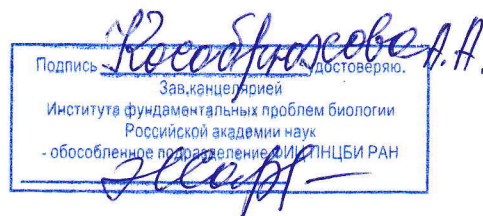 Подпись Кособрюхова А.А. удостоверяю.
Зав.канцелярией
Института фундаментальных проблем биологии
Российской академии наук
- обособленное подразделение ФИЦ ПНЦБИ РАН